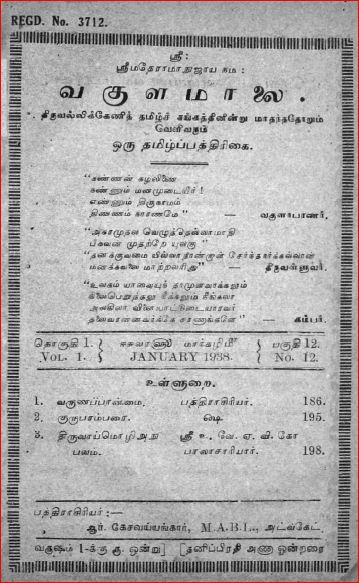 REGD. No. 3712.
ஸ்ரீ:
ஸ்ரீமதேராமாநுஜாய நம:
வகுளமாலை.
திருவல்லிக்கேணித் தமிழ்ச் சங்கத்தினின்று மாதந்தோறும்
வெளிவரும்
ஒரு தமிழ்ப்பத்திரிகை.
"கண்ணன் கழலிணை
நண்ணும் மனமுடையீர்!
எண்ணும் திருநாமம்
திண்ணம் நாரணமே" — வகுளாபரணர்.
"அகரமுதல வெழுத்தெல்லாமாதி
பகவன் முதற்றே யுலகு"
"தனக்குவமை யில்லாதான்றாள் சேர்ந்தார்க்கல்லால்
மனக்கவலை மாற்றலரிது" — திருவள்ளுவர்.
"உலகம் யாவையுந் தாமுளவாக்கலும்
நிலைபெறுத்தலு நீக்கலும் நீங்கலா
அலகிலா விளையாட்டுடையாரவர்
தலைவரன்னவர்க்கே சரணாங்களே" — கம்பர்.
தொகுதி 1. ஈசுவரவருஷ மார்கழிமீ பகுதி 12.
VOL. 1. JANUARY 1938. No. 12.
உள்ளுறை.
1. வருணப்பான்மை. பத்திராசிரியர். 186.
2. குருபரம்பரை. ௸ 195.
3. திருவாய்மொழி ஸ்ரீ உ. வே. ஏ. வி. கோ
பாலாசாரியார். 198.
பத்திராசிரியர்:—
ஆர். கேசவய்யங்கார், M.A.B.L., அட்வகேட்.
வருஷம் 1-க்கு ரூ. ஒன்று] [தனிப்பிரதி அணா ஒன்றரை